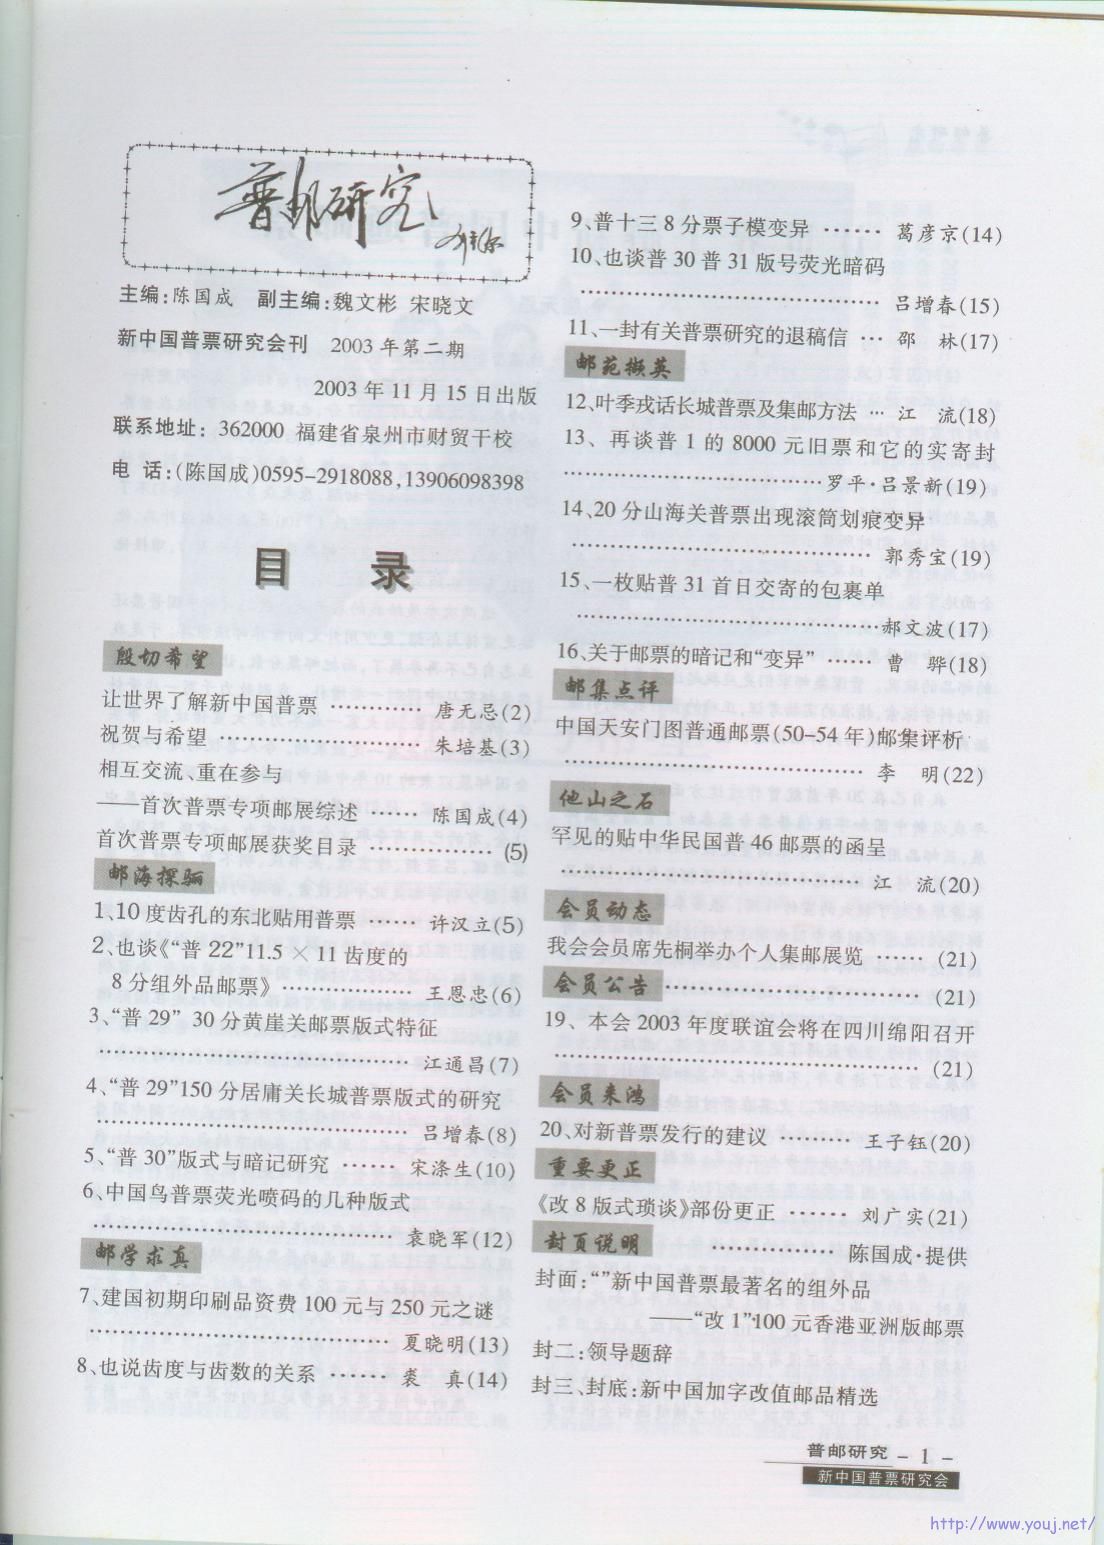 普邮研究
主编:陈国成 副主编:魏文彬 宋晓文
新中国普票研究会刊 2003年第二期
2003年11月15日出版
联系地址: 362000 福建省泉州市财贸干校
电 话:(陈国成)0595-2918088,13906098398
目 录
殷切希望
让世界了解新中国普票 ………… 唐无忌(2)
祝贺与希望 ………………… 朱培基(3)
相互交流、重在参与
——首次普票专项邮展综述 …… 陈国成(4)
首次普票专项邮展获奖目录 ………… (5)
邮海探骊
1、10度齿孔的东北贴用普票 …… 许汉立(5)
2、也谈《“普22”11.5×11齿度的
8分组外品邮票》 ………… 王恩忠(6)
3、“普29” 30分黄崖关邮票版式特征
………………………… 江通昌(7)
4、“普29”150分居庸关长城普票版式的研究
………………………… 吕增春(8)
5、“普30”版式与暗记研究 …… 宋涤生(10)
6、中国鸟普票荧光喷码的几种版式
………………………… 袁晓军(12)
邮学求真
7、建国初期印刷品资费100元与250元之谜
………………………… 夏晓明(13)
8、也说齿度与齿数的关系 …… 裘 真(14)
9、普十三8分票子模变异 …… 葛彦京(14)
10、也谈普30普31版号荧光暗码
………………………… 吕增春(15)
11、一封有关普票研究的退稿信 … 邵 林(17)
邮苑撷英
12、叶季戎话长城普票及集邮方法 … 江 流(18)
13、再谈普1的8000元旧票和它的实寄封
………………………… 罗平·吕景新(19)
14、20分山海关普票出现滚筒划痕变异
………………………… 郭秀宝(19)
15、一枚贴普31首日交寄的包裹单
………………………… 郝文波(17)
16、关于邮票的暗记和“变异” …… 曹 骅(18)
邮集点评
中国天安门图普通邮票(50-54年)邮集评析
………………………… 李 明(22)
他山之石
罕见的贴中华民国普46邮票的函呈
………………………… 江 流(20)
会员动态
我会会员席先桐举办个人集邮展览 …… (21)
会员公告 ………………………… (21)
19、本会2003年度联谊会将在四川绵阳召开
………………………… (21)
会员来鸿
20、对新普票发行的建议 ……… 王子钰(20)
重要更正
《改8版式琐谈》部份更正 …… 刘广实(21)
封页说明 ………… 陈国成·提供
封面:“”新中国普票最著名的组外品
——“改1”·100元香港亚洲版邮票
封二:领导题辞
封三、封底:新中国加字改值邮品精选
普邮研究 - 1 -
新中国普票研究会
http://www.youj.net/